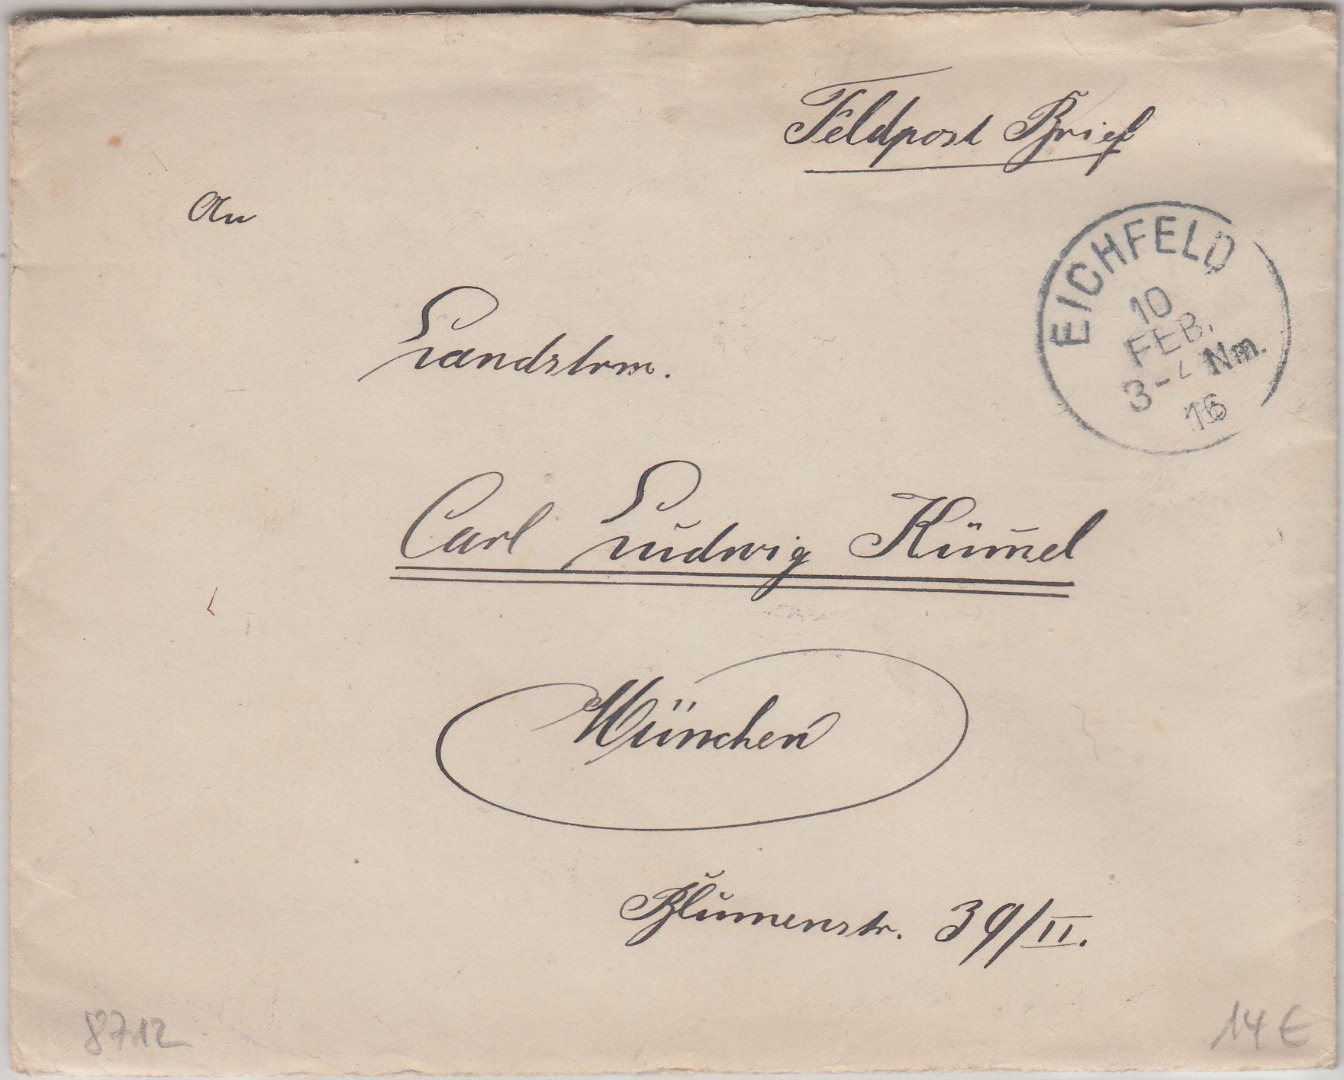 Feldpost Brief
An
EICHFELD
10
FEB.
3-4 Nm.
16
Landstrm.
Carl Ludwig Küm̄el
München
Blumenstr. 39/II.
8712
14 €